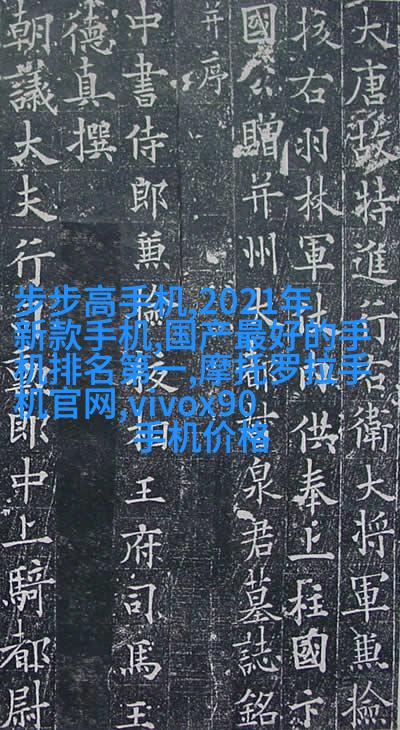 大唐故特進行右衛大將軍兼檢
校右羽林軍仗內供奉上柱國卞
國公贈并州大都督泉君墓誌銘
并序
中書侍郎兼檢校相王府司馬王
德真撰
朝議大夫行勳郎中上騎都尉
步步高手机,2021年
新款手机,国产最好的手
机排名第一,摩托罗拉手
机官网,vivox90
手机价格